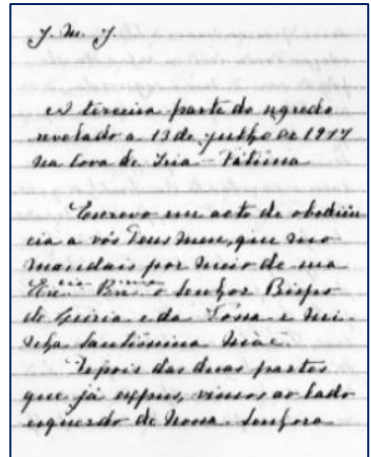 J. M. J.
A terceira parte do segredo
revelado a 13 de julho de 1917
na Cova de Iria – Fátima
Escrevo em acto de obediên
cia a vós Deus meu, que mo
mandais por meio de sua
Ex.cia Rev.ma o Senhor Bispo
de Leiria e da Vossa e mi
nha Santíssima Mãe.
Depois das duas partes
que já expus, vimos ao lado
esquerdo de Nossa Senhora